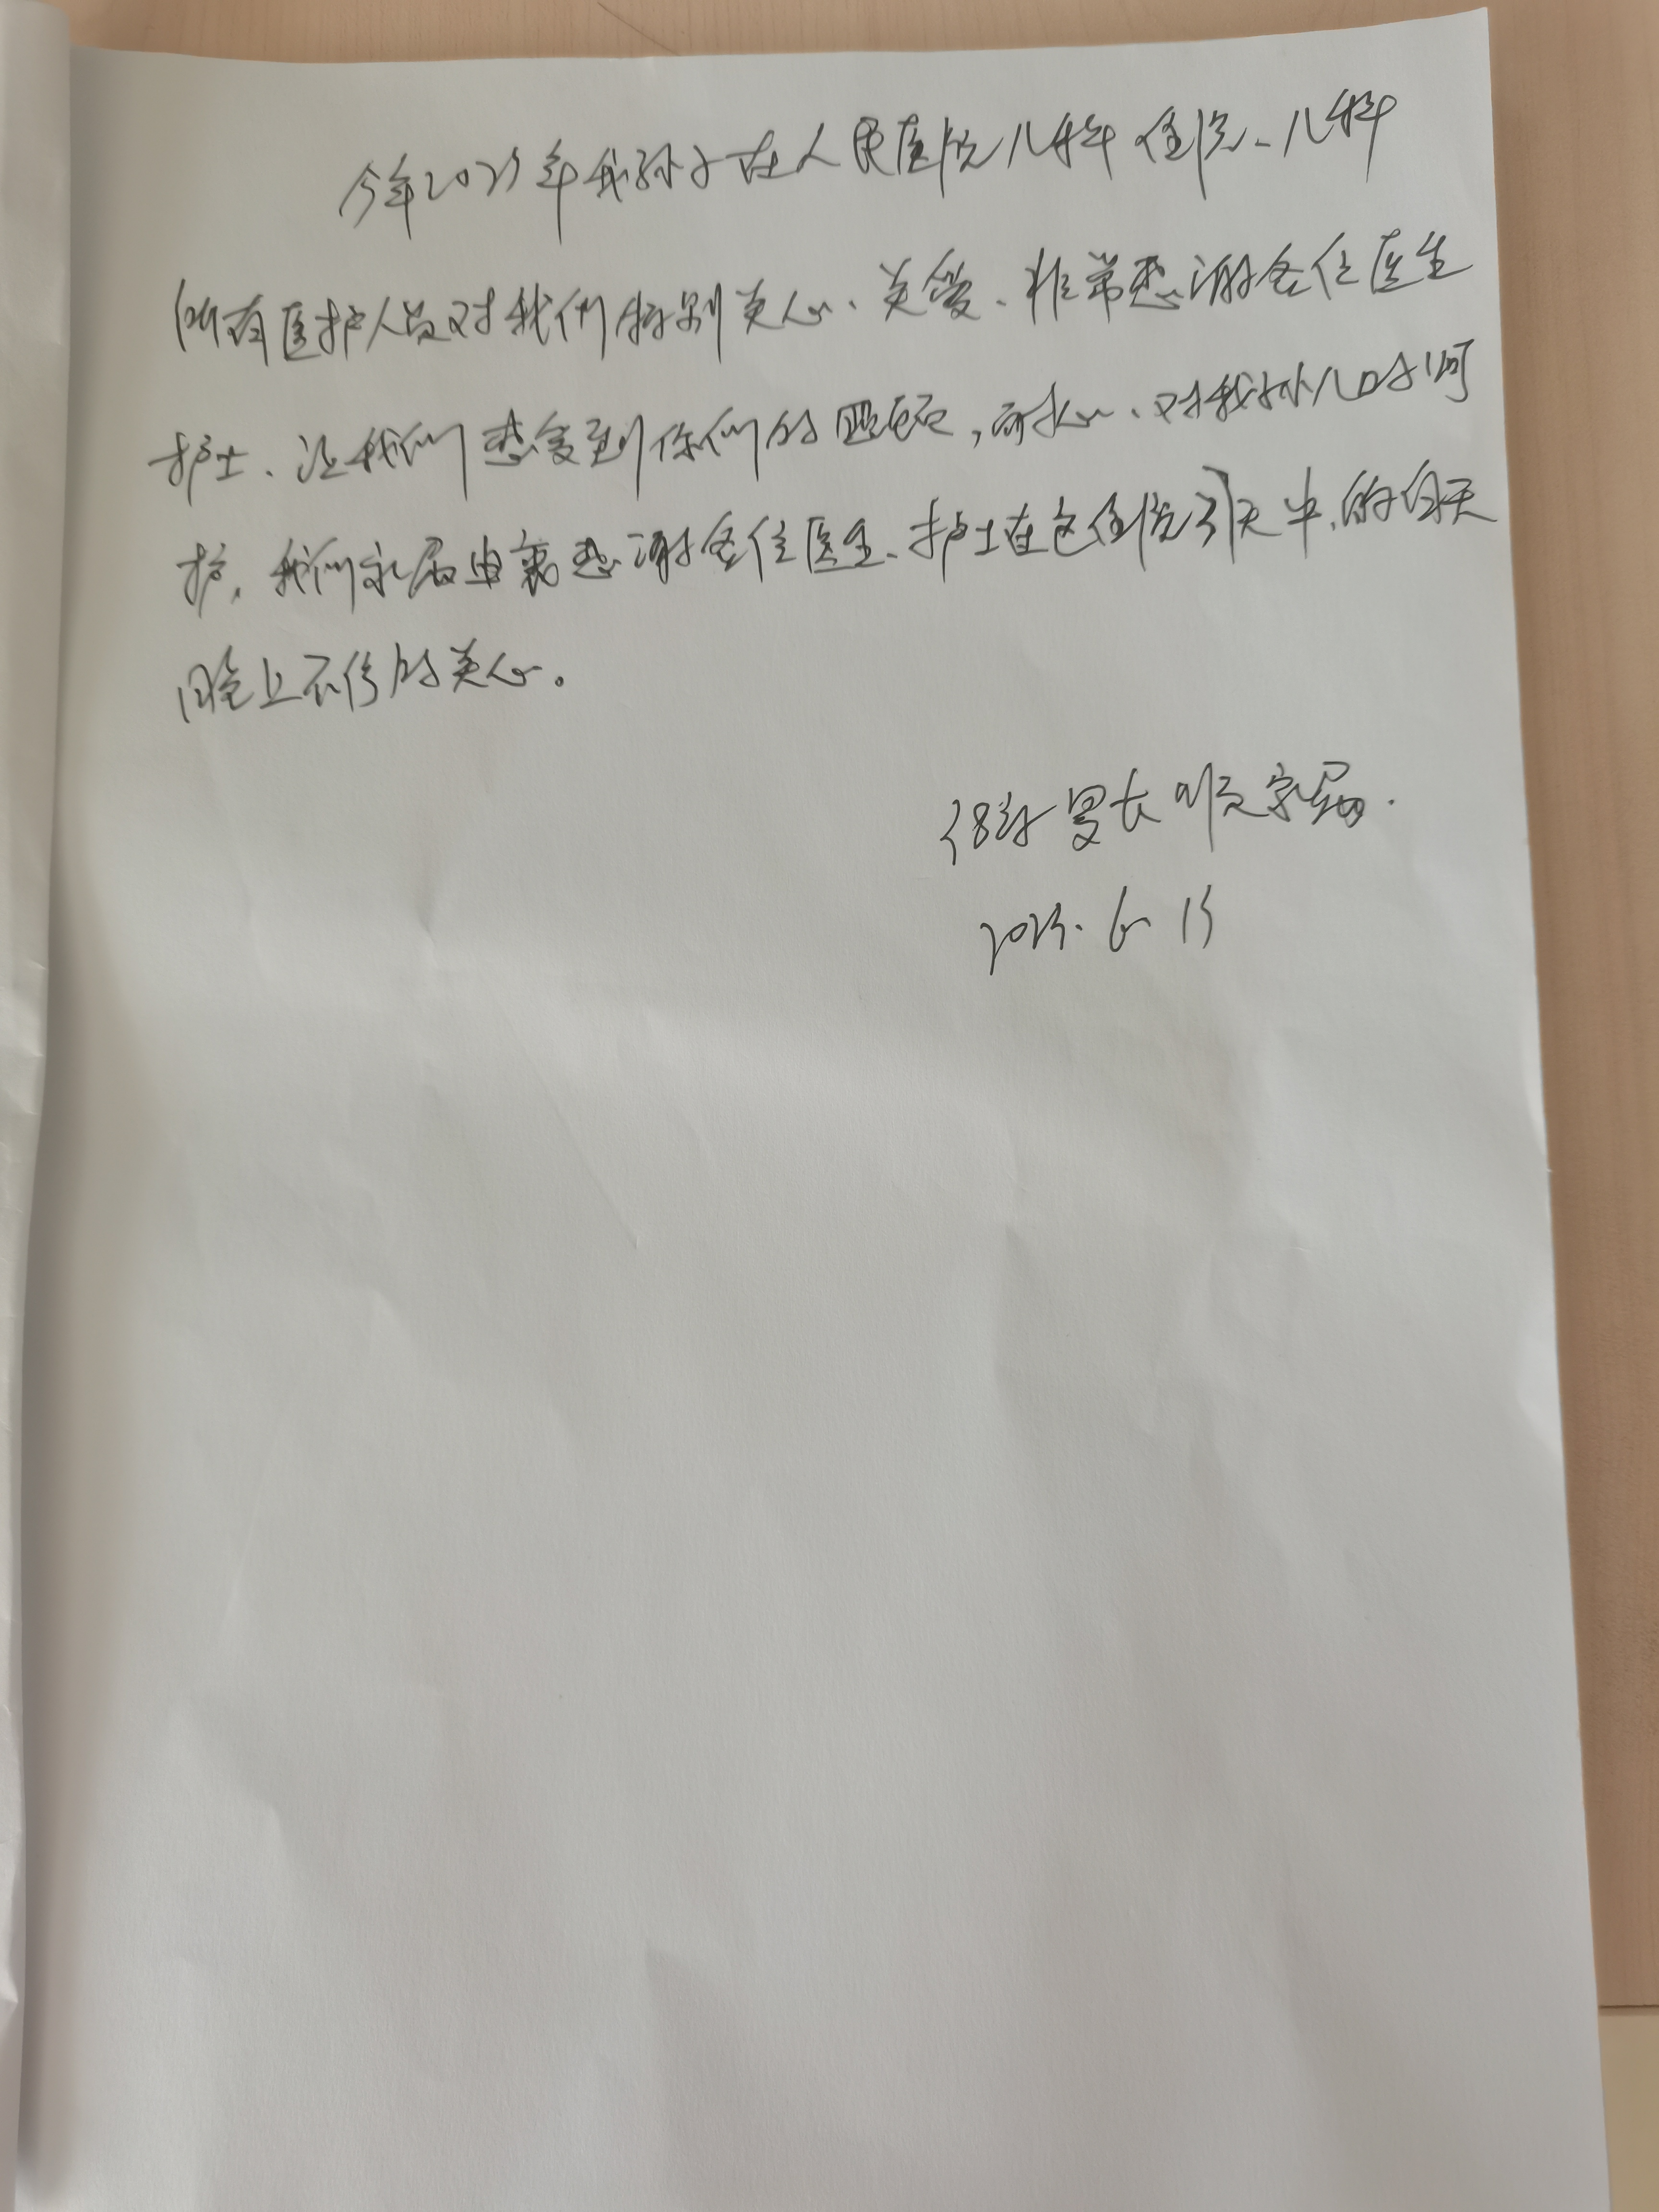 今年2025年我孙子在人民医院儿科住院、儿科
所有医护人员对我们特别关心、关爱、非常感谢各位医生
护士、让我们感受到你们的照顾,耐心、对我孙儿的呵
护,我们家属由衷感谢各位医生、护士在这住院引天中,的白天
晚上不停的关心。
长顺家属.
2025. 6 15